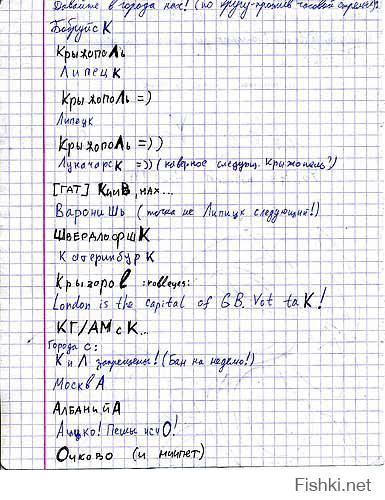 Давайте в города нах! (по кругу-против часовой стрелки)
БобруйсК
КрыжопоЛь
ЛипецК
КрыжопоЛь =)
Липецк
КрыжопоЛь =))
ЛукачарсК =)) (наверное следующ. Крыжополь?)
[ГАТ] КииВ, нах...
ВарониШь (точка не Липицк следующий!)
ШвердлофршК
КатеринбурК
Крызоров :rolleyes:
London is the capital of G.B. Vot taK!
КГ/АМ сК...
Города с:
К и Л запрещены! (Бан на неделю!)
МосквА
АлбанийА
Аццко! Пешы исчО!
Очково (и ниипет)
Fishki.net